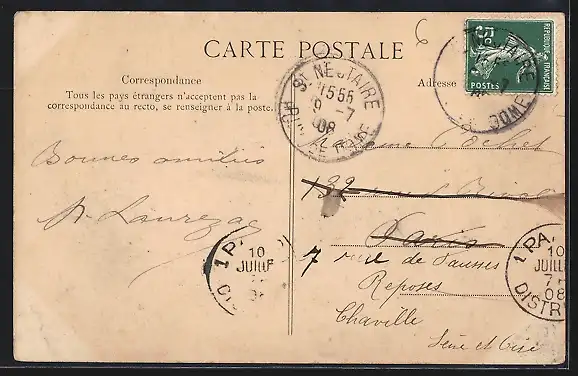 6
CARTE POSTALE
Correspondance
Tous les pays étrangers n'acceptent pas la
correspondance au recto, se renseigner à la poste.
Bonnes amitiés
Adresse
REPUBLIQUE FRANÇAISE
5c
POSTES
DOME
ST NECTAIRE
15 55
9 -7
08
PUY-DE-DOME
Madame
132
Paris
7 rue de Fausses
Reposes
Chaville
Seine et Oise
1 PA
10
JUILLET
DIS
1 PA
10
JUILL
7
08
DISTR